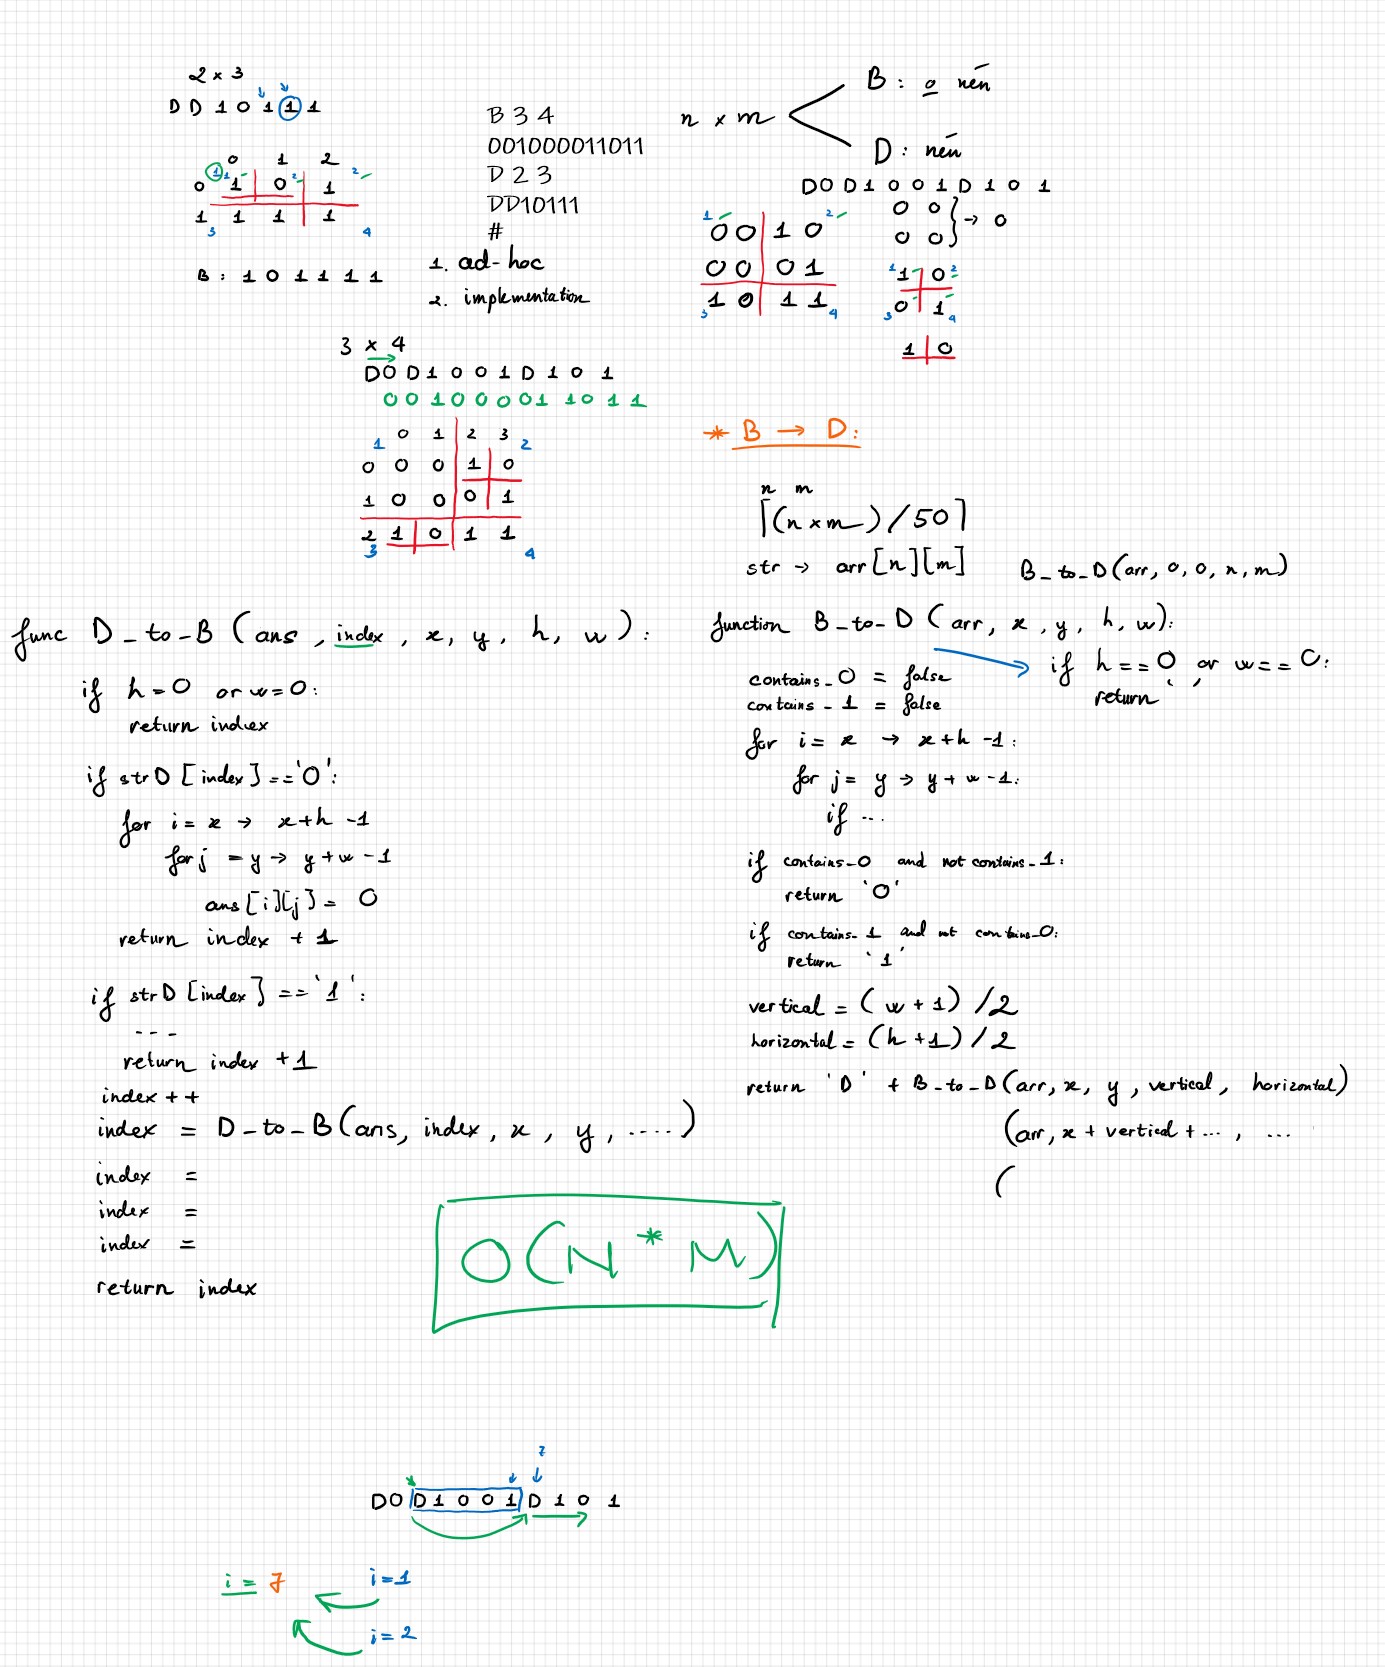 2 × 3
D D 1 0 1 1 1
0 1 2
1 1 2 2
0 1 0 1
1 1 1 1
3 4
B : 1 0 1 1 1 1
B 3 4
001000011011
D 2 3
DD10111
#
1. ad-hoc
2. implementation
n × m
B : o nén
D : nén
D0 D1 0 0 1 D 1 0 1
0 0
0 0
→ 0
1 2
0 0 1 0
0 0 0 1
1 0 1 1
3 4
1 1 0 2
3 0 1 4
1 0
3 × 4
D0 D1 0 0 1 D 1 0 1
0 0 1 0 0 0 0 1 1 0 1 1
1 0 1 2 3 2
0 0 0 1 0
1 0 0 0 1
2 1 0 1 1
3 4
* B → D:
n m
⌈(n × m) / 50⌉
str → arr[n][m]
B_to_D(arr, 0, 0, n, m)
func D_to_B (ans, index, x, y, h, w) :
if h = 0 or w = 0 :
return index
if strD [index] == '0' :
for i = x → x+h -1
for j = y → y+w -1
ans[i][j] = 0
return index + 1
if strD [index] == '1' :
---
return index + 1
index ++
index = D_to_B(ans, index, x, y, ....)
index =
index =
index =
return index
function B_to_D (arr, x, y, h, w):
if h == 0 or w == 0:
return ' '
contains_0 = false
contains_1 = false
for i = x → x+h -1 :
for j = y → y + w -1:
if ...
if contains_0 and not contains_1 :
return '0'
if contains_1 and not contains_0:
return '1'
vertical = (w + 1) /2
horizontal = (h +1) /2
return 'D' + B_to_D(arr, x, y, vertical, horizontal)
(arr, x + vertical + ..., ...
(
O(N * M)
7
D0 D1 0 0 1 D 1 0 1
i = 7
i = 1
i = 2